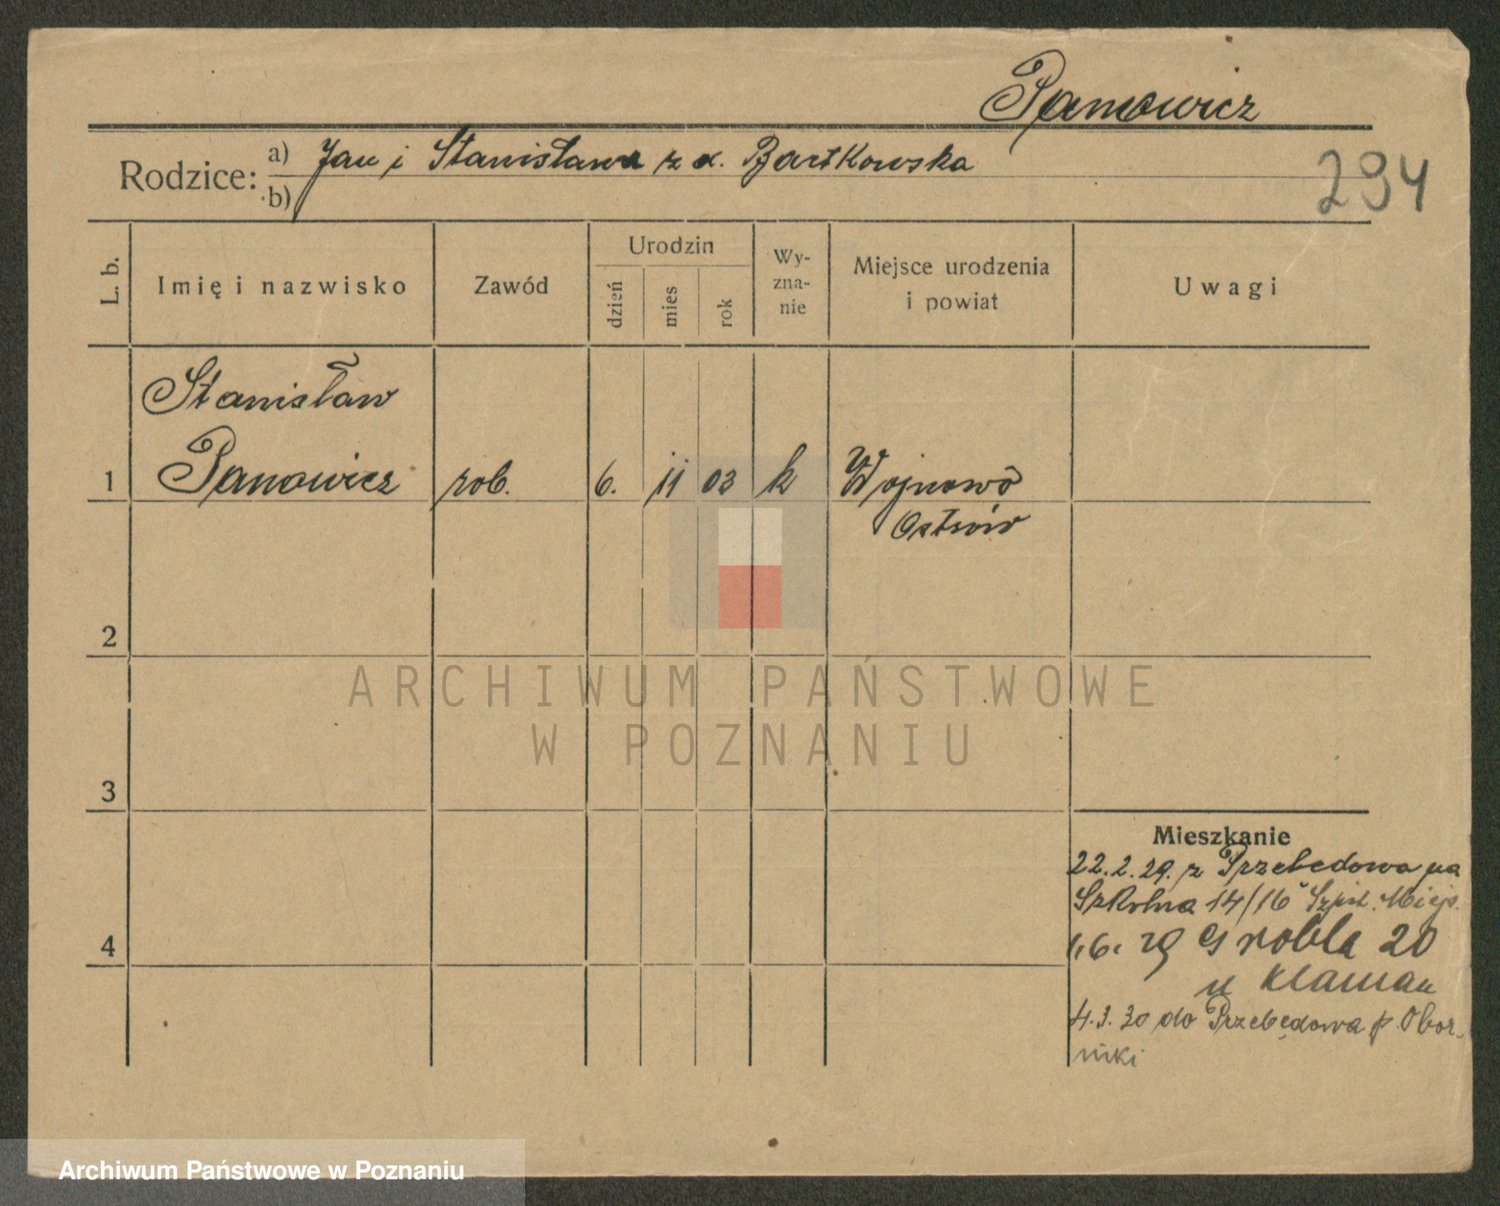 Panowicz
Rodzice: a) Jan i Stanisława z d. Bartkowska
b)
294
L. b.
Imię i nazwisko
Zawód
Urodzin
dzień
mies
rok
Wy-
zna-
nie
Miejsce urodzenia
i powiat
Uwagi
Stanisław
1 Panowicz rob. 6. 11 03 k Wojnowo
Ostrów
2
ARCHIWUM PAŃSTWOWE
W POZNANIU
3
Mieszkanie
22.2.29. z Przebędowa na
Szkolna 14/16 Szpit. Miejs.
4
1.6. 29 Grobla 20
u
4.3.30 do Przebędowa p. Obor-
niki
Archiwum Państwowe w Poznaniu